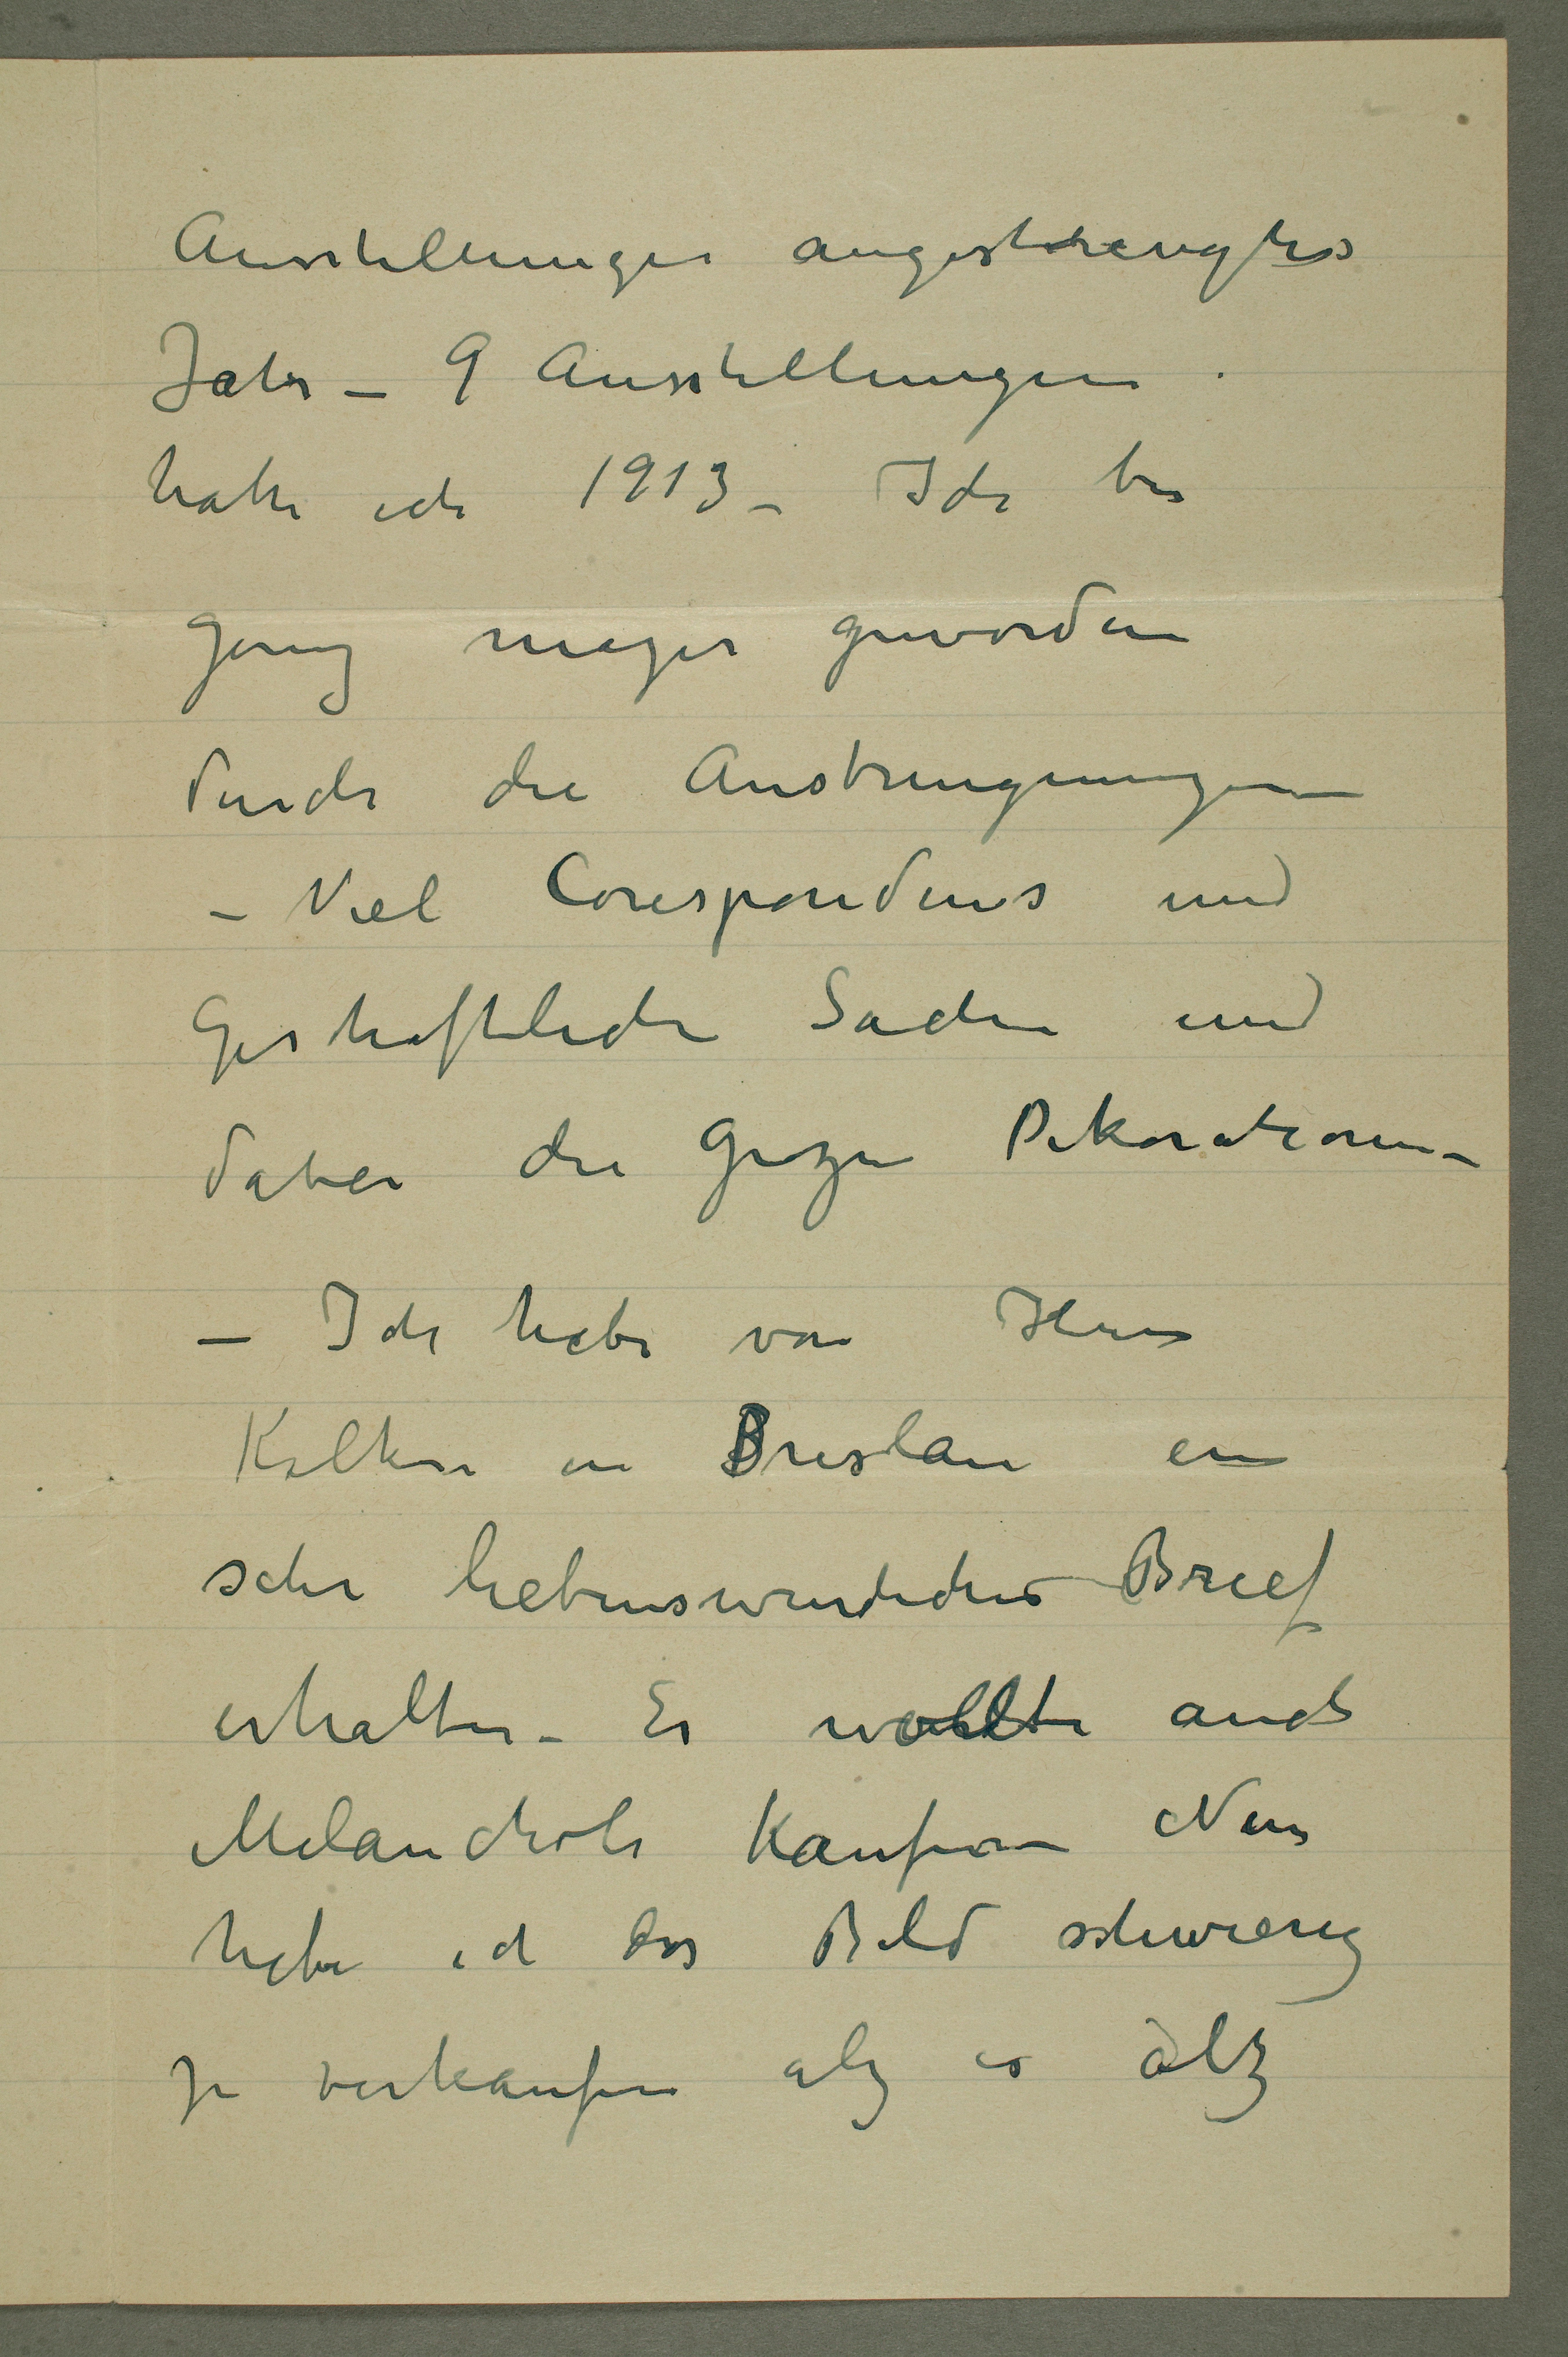 Ausstellungen angestrengtes
Jahr – 9 Ausstellungen .
hatte ich 1913 – Ich bin
ganz mager geworden
durch die Anstrengungen
– Viel Corespondens und
Geshaftliche Sachen und
dabei die grozen Dekorationen –
– Ich habe von Herrn
in Breslau ein
sehr liebenswurdiches Brief
erhalten – Er wollte auch
Melancholi kaufen Nun
habe ich das Bild schwierig
zu verkaufen alz es alz